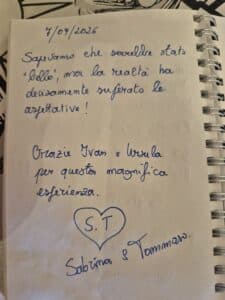 7/04/2026
Sapevamo che sarebbe stato
"bello", ma la realtà ha
decisamente superato le
aspettative!
Grazie Ivan e Ursula
per questa magnifica
esperienza.
S.T
Sabrina & Tommaso.